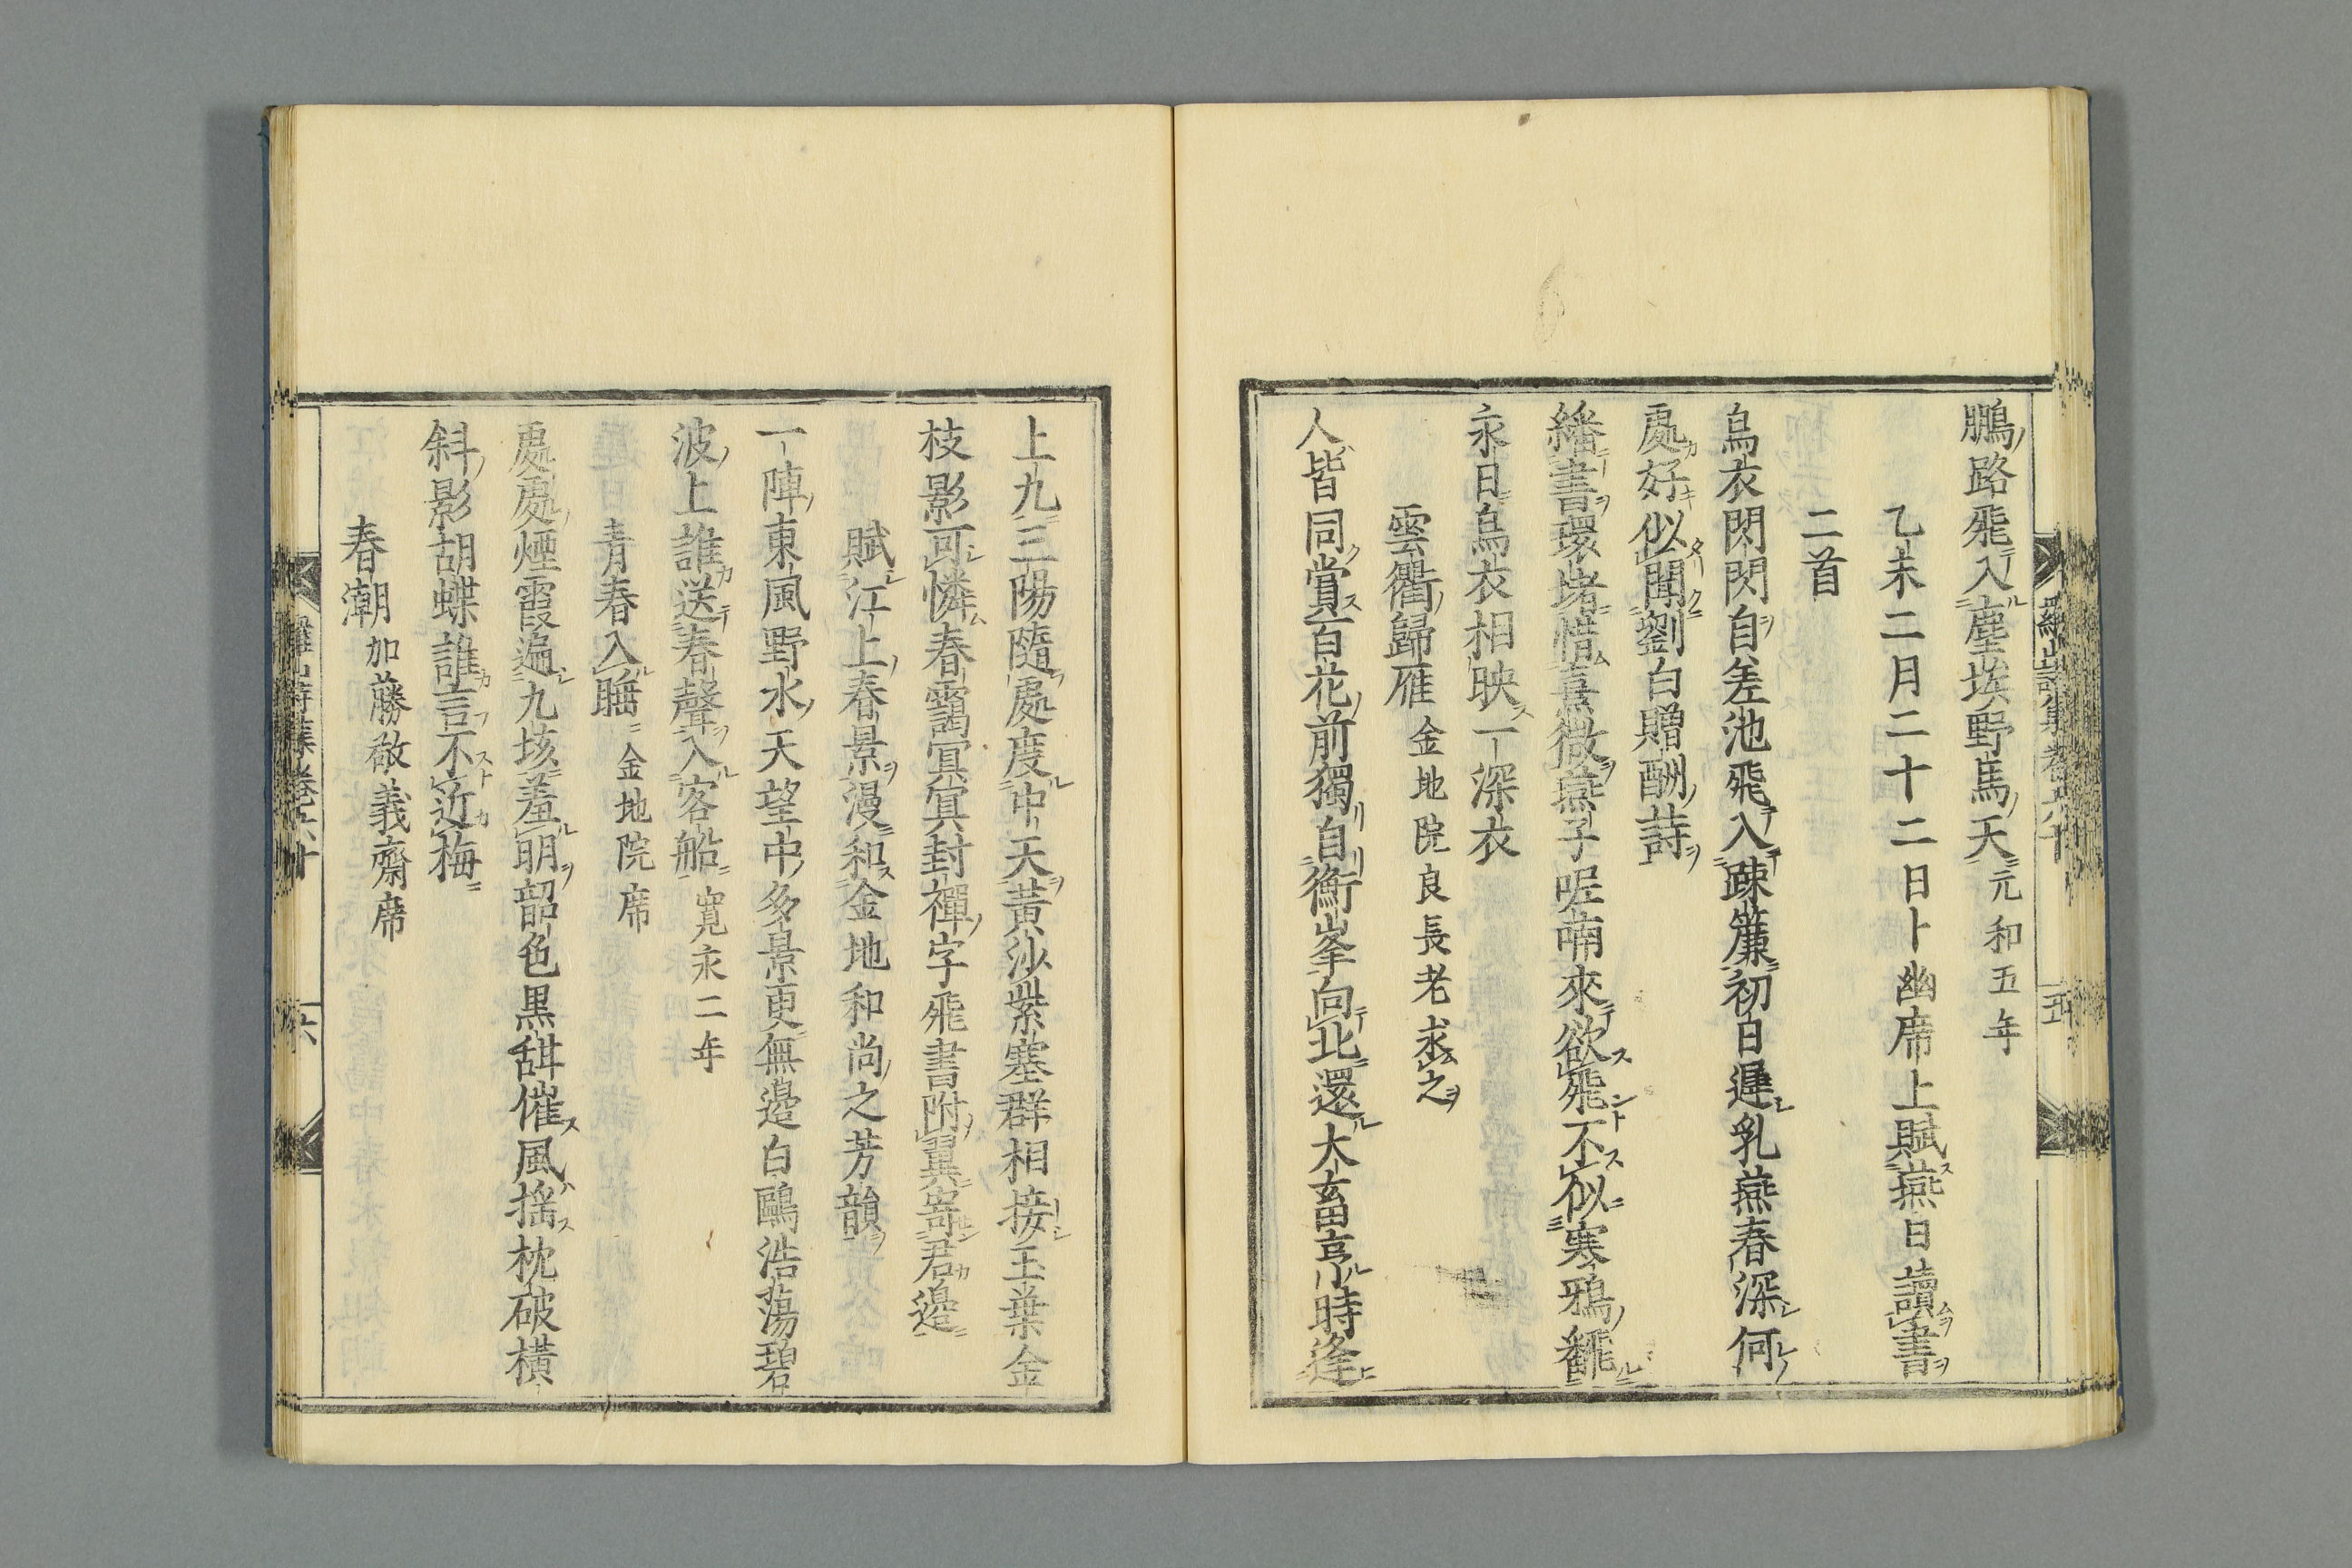 鵬路飛入塵埃野馬天元和五年
乙未二月二十二日卜幽席上賦燕日讀書
二首
烏衣閃閃自差池飛入疎簾初日遲乳燕春深何
處好似聞劉白贈酬詩
繙書環堵惜熹微燕子呢喃來欲飛不似寒鴉飜
永日烏衣相映一深衣
雲衢歸雁金地院良長老求之
人皆同賞百花前獨自衡峯向北還大畜亨小時逢
上九三陽隨處度中天黃沙紫塞群相接玉葉金
枝影可憐春靄寘寘封禪字飛書附翼寄君邊
賦江上春景漫和金地和尚之芳韻
一陣東風野水天望中多景更無邊白鷗浩蕩碧
波上誰送春聲入客船寬永二年
青春入睡金地院席
處處煙霞遍九垓羞明韶色黑甜催風搖枕破橫
斜影胡蝶誰言不近梅
春潮加藤敬義齋席
羅山詩集卷六十
六